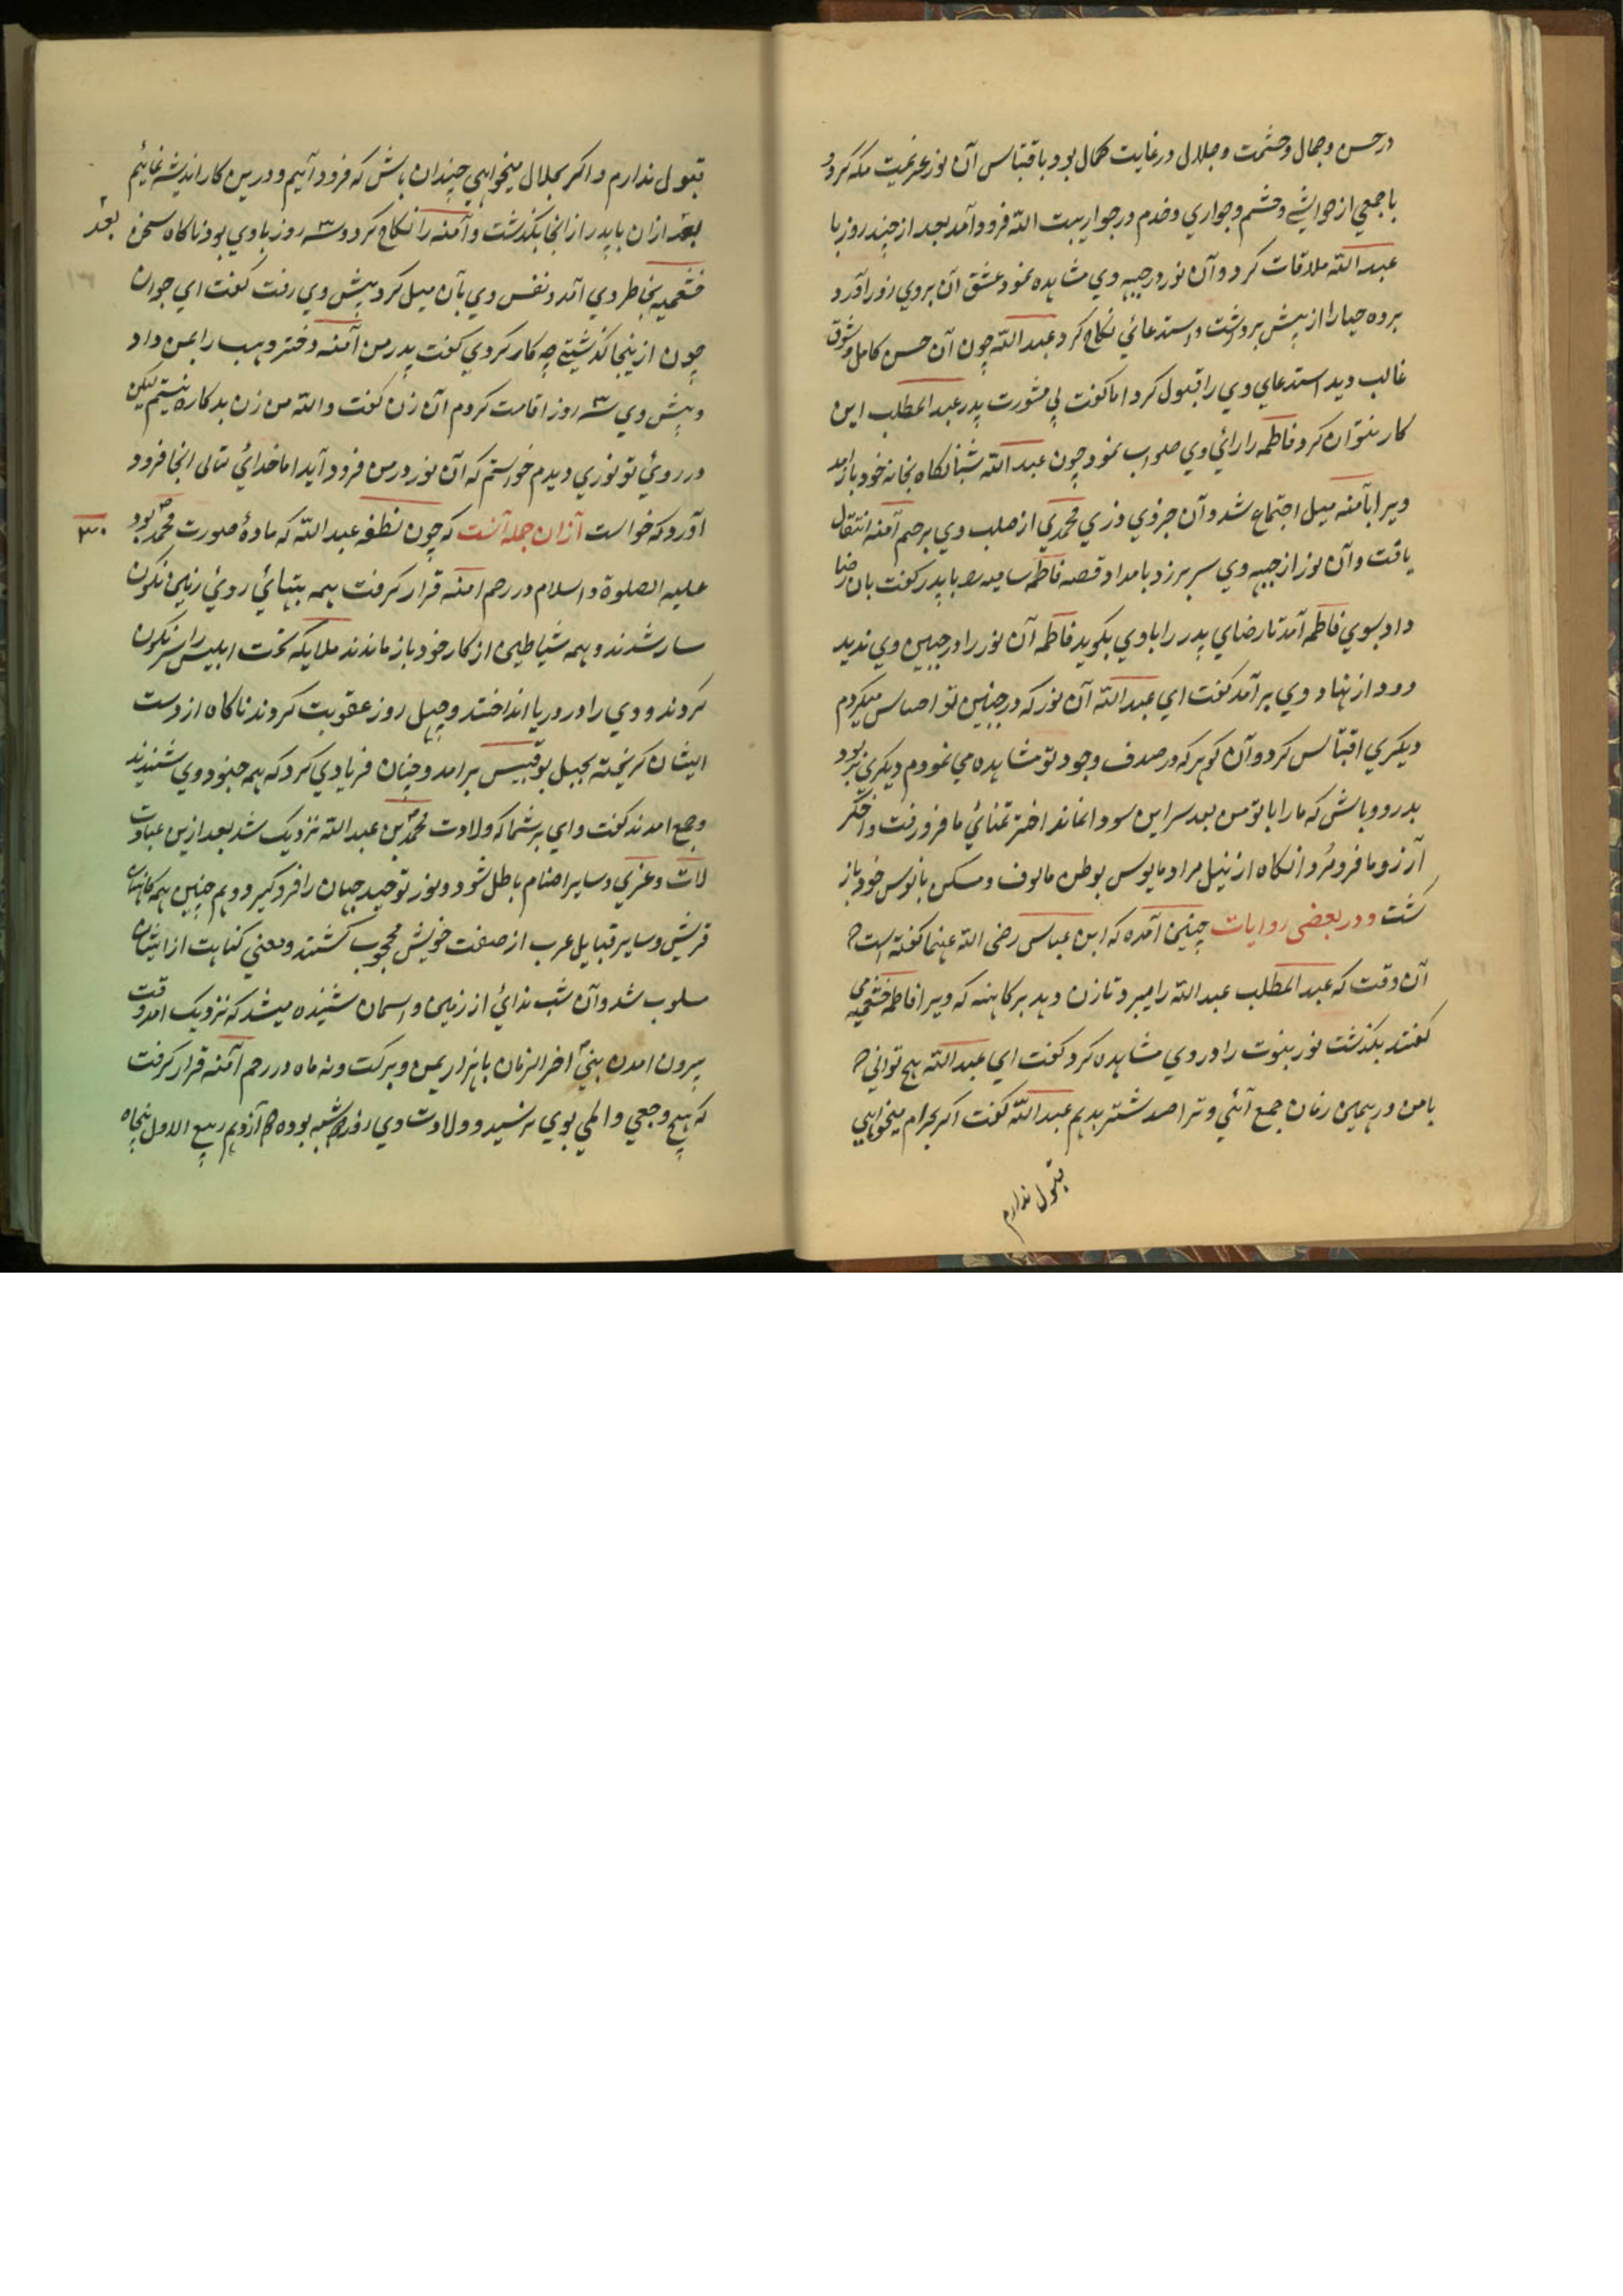 در حسن و جمال و حشمت و جلال در غایت کمال بود باقتباس آن نور عزیمت مکه کرد و
با جمعی از حواشی و حشم و جواری و خدم در جوار بیت الله فرود آمد بعد از چند روز با
عبد الله ملاقات کرد و آن نور در جبهه وی مشاهده نمود عشق آن بروی زور آورد و
پرده حیا را از پیش برداشت و استدعائی نکاح کرد عبد الله چون آن حسن کامل و شوق
غالب دید استدعای وی را قبول کرد اما کفت بی مشورت پدر عبد المطلب این
کار نتوان کرد فاطمه را رائی وی صواب نمود چون عبد الله شبانکاه بخانه خود باز امد
ویرا بآمنه میل اجتماع شد و آن جزوی ذری محمدی از صلب وی برحم آمنه انتقال
یافت و آن نور از جبهه وی سر برزد بامداد قصه فاطمه شامیه را با پدر کفت بان رضا
داد بسوی فاطمه آمد تا رضای پدر را با وی بکوید فاطمه آن نور را در جبین وی ندید
دود از نهاد وی برآمد کفت ای عبد الله آن نور که در جبین تو احساس میکردم
دیکری اقتباس کرد و آن کوهر که در صدف وجود تو مشاهده می نمودم دیکری برد
بدرود باش که ما را با تو من بعد سر این سودا نماند اختر تمنائی ما فرو رفت و اخکر
آرزو ما فرو مرد انکاه از نیل مراد مایوس بوطن مالوف و مسکن مانوس خود باز
کشت و در بعضی روایات چنین آمده که ابن عباس رضی الله عنهما کفته است که
آن وقت که عبد المطلب عبد الله را میبرد تا زن دهد بر کاهنه که ویرا فاطمه خثعمیه می
کفتند بکذشت نور نبوت را در وی مشاهده کرد کفت ای عبد الله هیچ توانی که
با من در همین زمان جمع آئی و ترا صد شتر بدهم عبد الله کفت اکر بحرام میخواهی
قبول ندارم
قبول ندارم و اکر بحلال میخواهی چندان باش که فرود آئیم و درین کار اندیشه نمائیم
بعد ازان با پدر از انجا بکذشت و آمنه را نکاح کرد و سه روز با وی بود ناکاه سخن
بعد
خثعمیه بخاطر وی آمد و نفس وی بآن میل کرد پیش وی رفت کفت ای جوان
چون از ینجا کذشتی چه کار کردی کفت پدر من آمنه دختر وهب را بمن داد
و پیش وی سه روز اقامت کردم آن زن کفت والله من زن بدکاره نیستم لیکن
در روئی تو نوری دیدم خواستم که آن نور در من فرود آید اما خدائی تعالی انجا فرود
آورد که خواست آزان جمله آنست که چون نطفه عبد الله که مادهٔ صورت محمد بود
۳۰
علیه الصلوة والسلام در رحم امنه قرار کرفت همه بتهائی روئی زمین نکون
سار شدند و همه شیاطین از کار خود باز ماندند ملایکه تخت ابلیس را سرنکون
کردند و وی را در دریا انداختند و چهل روز عقوبت کردند ناکاه از دست
ایشان کریخته بجبل بو قبیس برامد و چنان فریادی کرد که همه جنود وی شنیدند
و جمع امدند کفت وای بر شما که ولادت محمد بن عبد الله نزدیک شد بعد ازین عبادت
لات و عزی و سایر اصنام باطل شود و نور توحید جهان را فرو کیرد و هم چنین همه کاهنان
قریش و سایر قبایل عرب از صفت خویش محجوب کشتند و معنی کهانت از ایشان
مسلوب شد و آن شب ندائی از زمین و اسمان شنیده میشد که نزدیک امد وقت
بیرون امدن نبی آخر الزمان با هزار یمن و برکت و نه ماه در رحم آمنه قرار کرفت
که هیچ وجعی و المی بوی نرسید و ولادت وی روز دوشنبه بوده دوازدهم ربیع الاول پنجاه